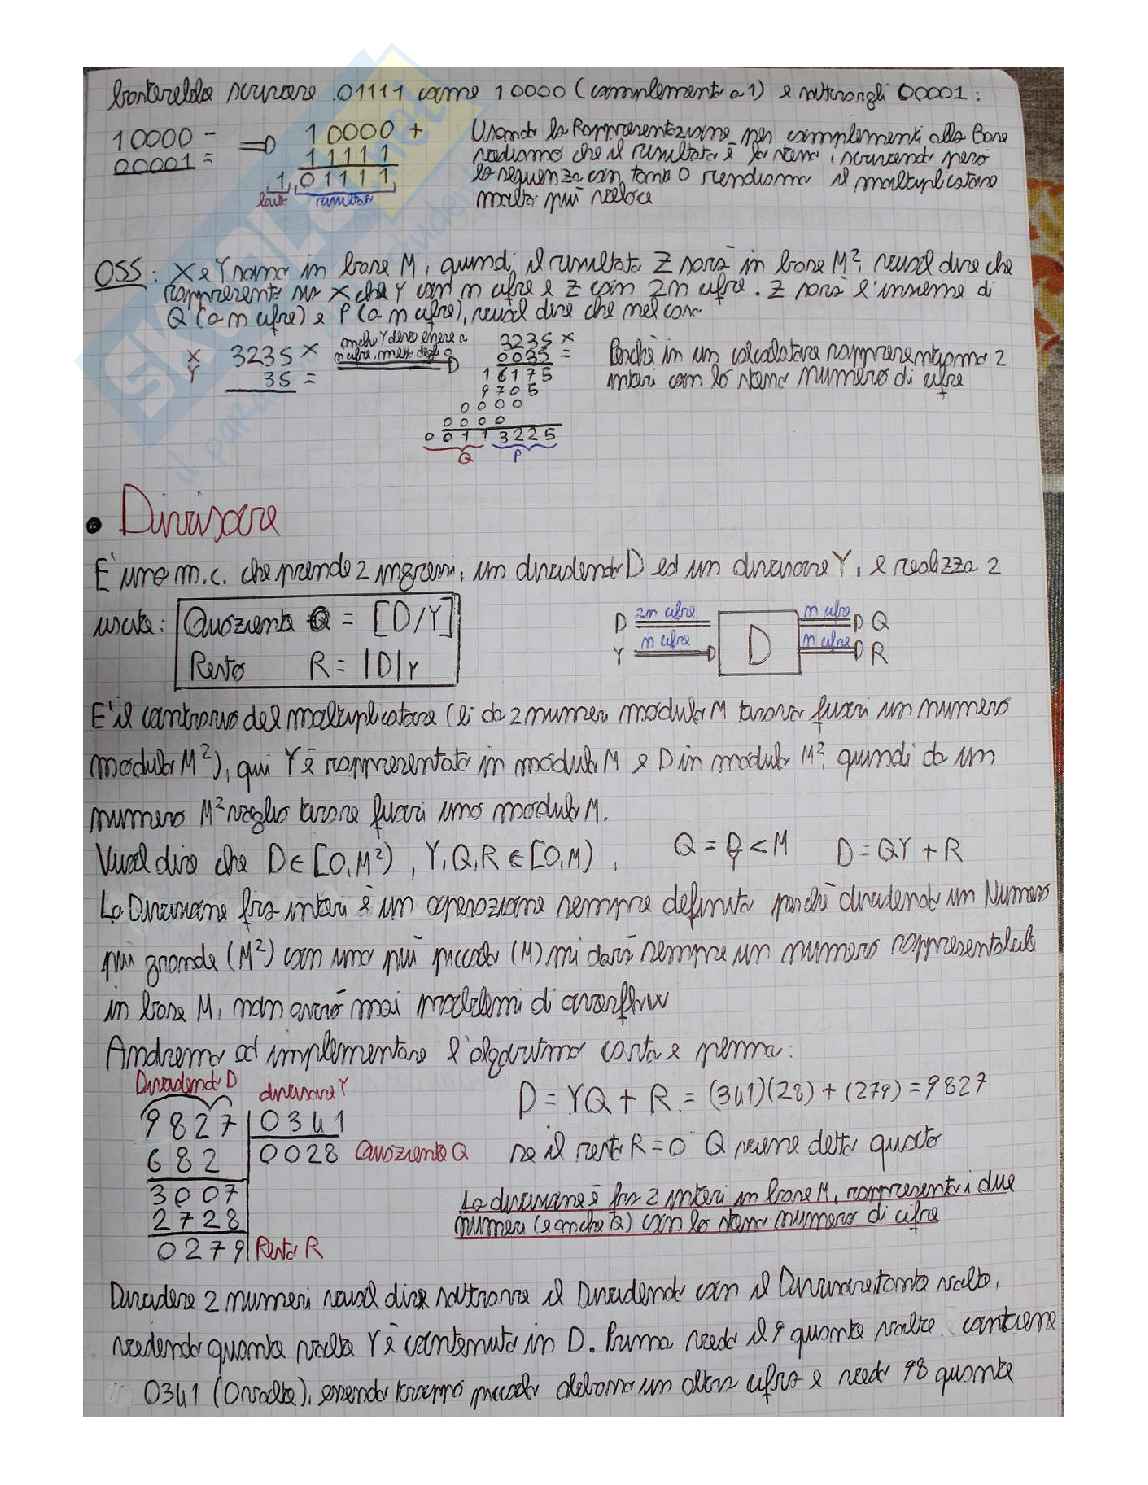 basterebbe scrivere 01111 come 10000 (complemento a 1) e sottrargli 00001:
10000 -
00001 =
10000 +
11111
1 01111
risultato
Usando la Rappresentazione per complementi alla Base
vediamo che il risultato è lo stesso, scrivendo però
la sequenza con tanti 0 rendiamo il moltiplicatore
molto più veloce
OSS: X e Y sono in base M, quindi il risultato Z sarà in base M², vuol dire che
rappresento sia X che Y con m cifre e Z con 2m cifre. Z sarà l'insieme di
Q (a m cifre) e P (a m cifre), vuol dire che nel caso
X 3235 ×
Y 35 =
anche Y deve avere 4
cifre, metto degli 0
3235 ×
0035 =
16175
9705
0000
0000
00113225
Q P
Perchè in un calcolatore rappresentiamo 2
interi con lo stesso numero di cifre
• Divisore
E' una m.c. che prende 2 ingressi, un dividendo D ed un divisore Y, e realizza 2
uscite: Quoziente Q = [D/Y]
Resto R = |D|Y
D 2m cifre
Y m cifre
D
m cifre Q
m cifre R
E' il contrario del moltiplicatore (lì da 2 numeri modulo M tirava fuori un numero
modulo M²), qui Y è rappresentato in modulo M e D in modulo M², quindi da un
numero M² voglio tirare fuori uno modulo M.
Vuol dire che D ∈ [0,M²) , Y,Q,R ∈ [0,M) , Q = D/Y < M D = QY + R
La Divisione fra interi è un operazione sempre definita perchè dividendo un Numero
più grande (M²) con uno più piccolo (M) mi darà sempre un numero rappresentabile
in base M, non avrò mai problemi di overflow
Andremo ad implementare l'algoritmo carta e penna:
Dividendo D divisore Y
9827 0341
682 0028 Quoziente Q
3007
2728
0279 Resto R
D = YQ + R = (341)(28) + (279) = 9827
se il resto R = 0 Q viene detto quoto
La divisione è fra 2 interi in base M, rappresento i due
numeri (e anche Q) con lo stesso numero di cifre
Dividere 2 numeri vuol dire sottrarre il Dividendo con il Divisore tante volte,
vedendo quante volte Y è contenuto in D. Prima vedo il 9 quante volte contiene
0341 (0 volte), essendo troppo piccolo abbasso un altra cifra e vedo 98 quante